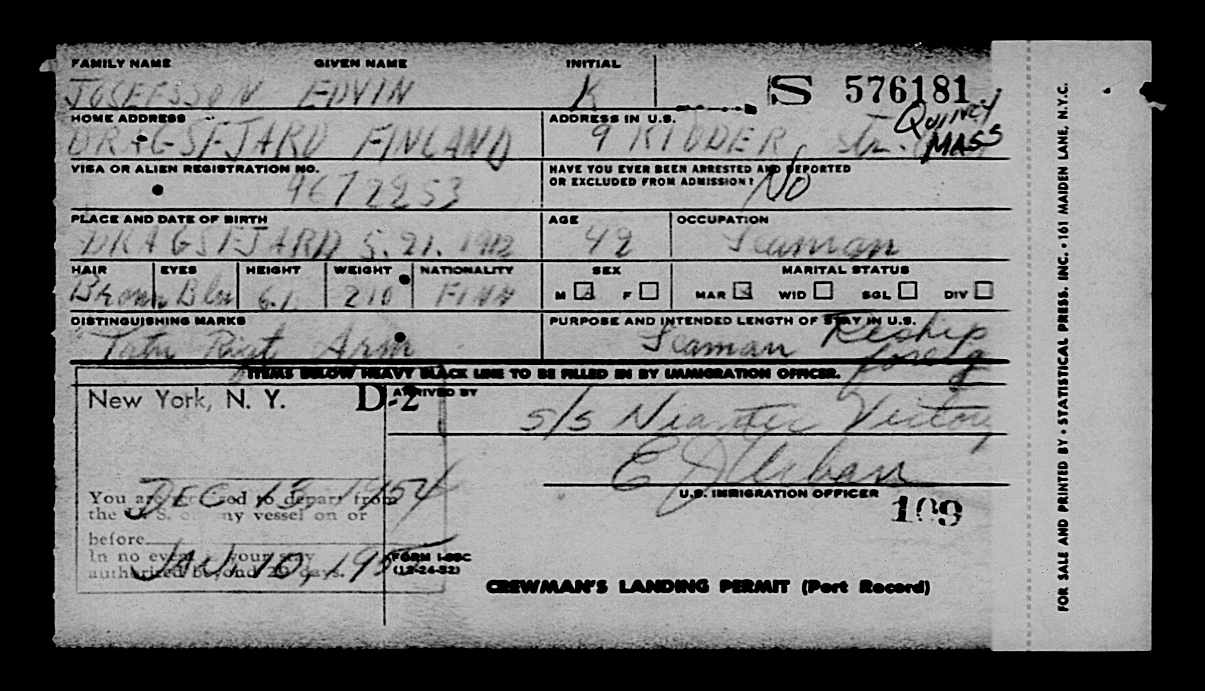 FAMILY NAME GIVEN NAME INITIAL
JOSEFSSON EDVIN K S 576181
HOME ADDRESS ADDRESS IN U.S.
DRAGSFJARD FINLAND 9 KIDDER, Str. QUINCY MASS
VISA OR ALIEN REGISTRATION NO. HAVE YOU EVER BEEN ARRESTED AND DEPORTED
OR EXCLUDED FROM ADMISSION? NO
9672253
PLACE AND DATE OF BIRTH AGE OCCUPATION
DRAGSFJARD 5. 21. 1912 42 Seaman
HAIR EYES HEIGHT WEIGHT NATIONALITY SEX MARITAL STATUS
Brown Blu 6.1 210 FINN M F MAR WID SGL DIV
DISTINGUISHING MARKS PURPOSE AND INTENDED LENGTH OF STAY IN U.S.
Tatu Rigt Arm Seaman Reship foreig
ITEMS BELOW HEAVY BLACK LINE TO BE FILLED IN BY IMMIGRATION OFFICER.
New York, N. Y. D-2 ARRIVED BY
s/s Niantic Victory
DEC 13, 1954
You are to depart from
the U. S. on any vessel on or
before
U.S. IMMIGRATION OFFICER
109
In no event your stay
authorized beyond 29 days.
JAN. 10, 195
FORM I-95C
(12-24-52)
CREWMAN'S LANDING PERMIT (Port Record)
FOR SALE AND PRINTED BY • STATISTICAL PRESS. INC. • 161 MAIDEN LANE, N.Y.C.